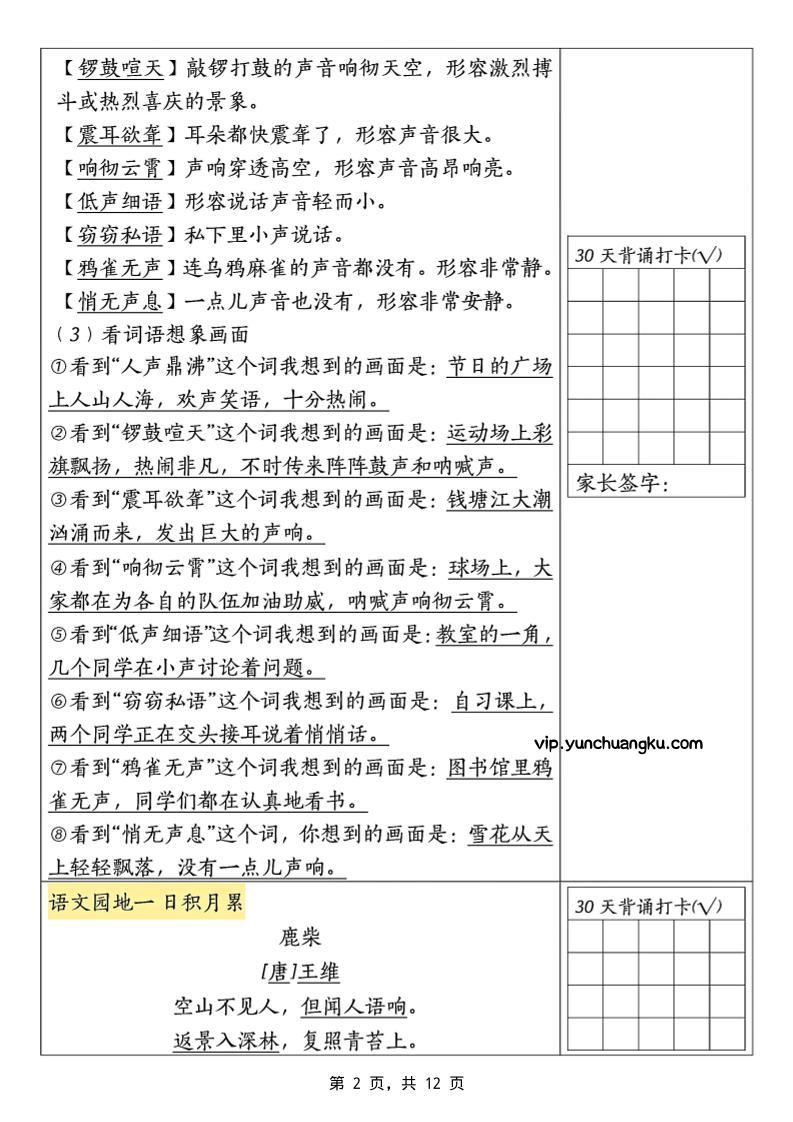 【锣鼓喧天】敲锣打鼓的声音响彻天空，形容激烈搏
斗或热烈喜庆的景象。
【震耳欲聋】耳朵都快震聋了，形容声音很大。
【响彻云霄】声响穿透高空，形容声音高昂响亮。
【低声细语】形容说话声音轻而小。
【窃窃私语】私下里小声说话。
【鸦雀无声】连乌鸦麻雀的声音都没有。形容非常静。
【悄无声息】一点儿声音也没有，形容非常安静。
（3）看词语想象画面
①看到“人声鼎沸”这个词我想到的画面是：节日的广场
上人山人海，欢声笑语，十分热闹。
②看到“锣鼓喧天”这个词我想到的画面是：运动场上彩
旗飘扬，热闹非凡，不时传来阵阵鼓声和呐喊声。
③看到“震耳欲聋”这个词我想到的画面是：钱塘江大潮
汹涌而来，发出巨大的声响。
④看到“响彻云霄”这个词我想到的画面是：球场上，大
家都在为各自的队伍加油助威，呐喊声响彻云霄。
⑤看到“低声细语”这个词我想到的画面是：教室的一角，
几个同学在小声讨论着问题。
⑥看到“窃窃私语”这个词我想到的画面是：自习课上，
两个同学正在交头接耳说着悄悄话。
⑦看到“鸦雀无声”这个词我想到的画面是：图书馆里鸦
雀无声，同学们都在认真地看书。
⑧看到“悄无声息”这个词，你想到的画面是：雪花从天
上轻轻飘落，没有一点儿声响。
30 天背诵打卡(√)
家长签字：
vip.yunchuangku.com
语文园地一 日积月累
鹿柴
[唐]王维
空山不见人，但闻人语响。
返景入深林，复照青苔上。
30 天背诵打卡(√)
第 2 页，共 12 页